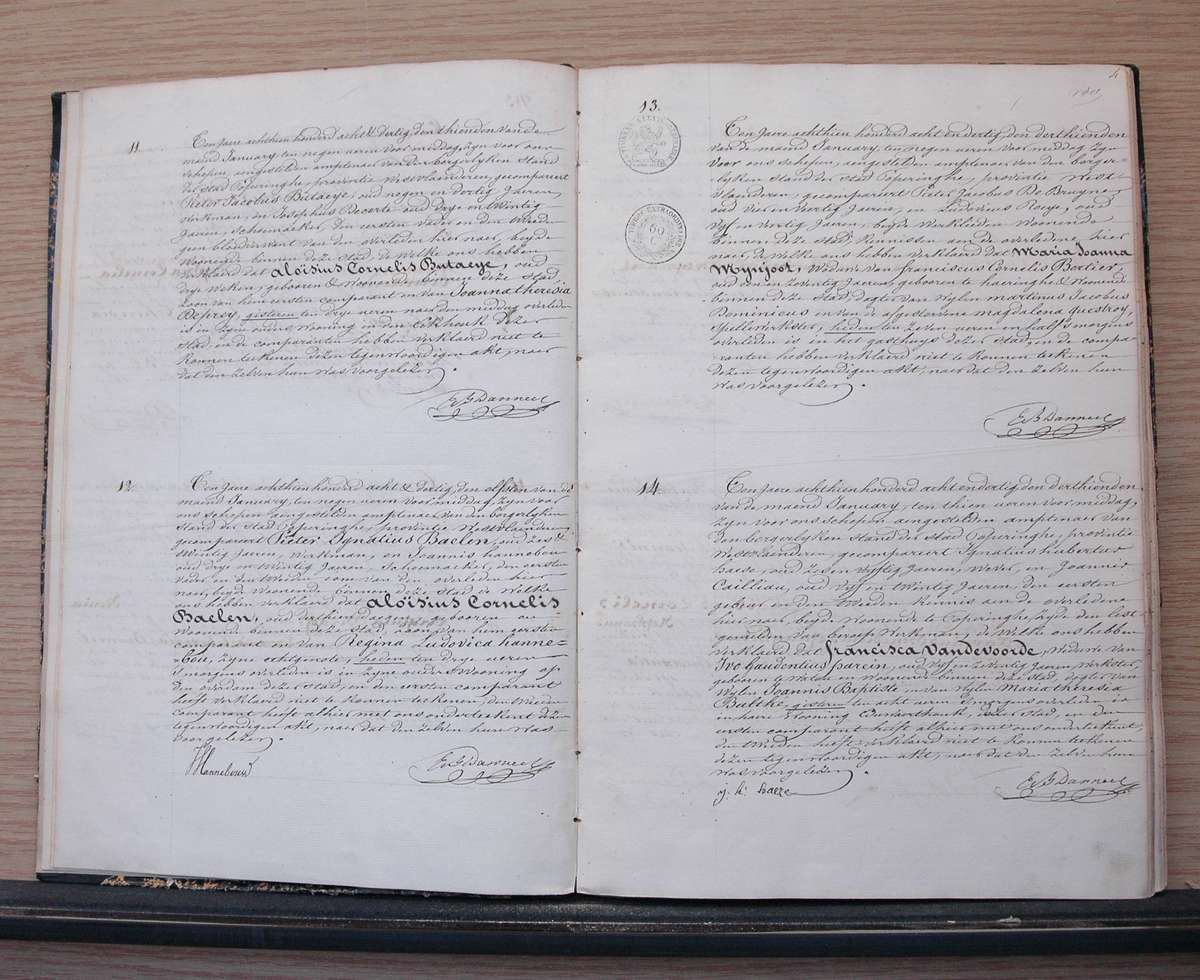 11.
Ten Jaere achthien honderd acht & dertig, den thienden van de
maend January, ten negen ueren voor middag, zyn voor ons
schepen, aengestelden amptenaer van den borgerlyken Stand
der stad Poperinghe, provintie Westvlaenderen, gecompareert
Pieter Jacobus Butaeye, oud negen en dertig Jaeren,
Werkman, en Josephus Decorte oud drye en twintig
Jaeren, Schoemaeker, den eersten vader en den tweeden
gen bloedverwant van den overleden hier naer, beyde
Woonende binnen deze Stad, de Welke ons hebben
Verklaerd dat Aloïsius Cornelis Butaeye, oud
drye weken, geboren & Woonende binnen deze Stad,
Zoon van hem eersten comparant en van Joanna theresia
Deproy, gisteren ten drye ueren naer den middag overleden
is in zyne ouders Wooning in den Eekhouk dezer
Stad, en de comparanten hebben verklaerd niet te
konnen teekenen dezen tegenwoordigen akt, naer
dat den zelven hun was voorgelezen.
E. B. Danneel
12.
Ten Jaere achthien honderd acht & dertig, den elfsten van de
maend January, ten negen ueren voormiddag, zyn voor
ons schepen aengestelden amptenaer van den borgerlyken
Stand der Stad Poperinghe, provintie Westvlaenderen,
gecompareert Pieter Ignatius Baelen, oud zes &
twintig Jaeren, Werkman, en Joannis hannebou
oud drye en twintig Jaeren, Schoemaeker, den eersten
vader en den tweeden, oom van den overleden hier
naer, beyde Woonende binnen deze Stad, de Welke
ons hebben verklaerd dat Aloïsius Cornelis
Baelen, oud derthien daegen, geboren en
Woonende binnen deze Stad, zoon van hem eersten
comparant en van Regina Ludovica hanne=
bou, zyne echtgenote, heden ten drye ueren
'smorgens overleden is in zyne ouders Wooning op
den overdam dezer Stad, en den eersten comparant
heeft verklaerd niet te konnen teekenen, den tweeden
comparant heeft alhier met ons onderteekent dezen
tegenwoordigen akt, naer dat den zelven hun was
voorgelezen.
Hannebouw
E. B. Danneel
4
13.
Ten Jaere achthien honderd acht en dertig, den derthienden
van de maend January, ten negen ueren voor middag zyn
voor ons schepen, aengestelden amptenaer van den borger=
lyken Stand der Stad Poperinghe, provintie West
vlaenderen, gecompareert Pieter Jacobus De Bruyne
oud vier en veertig Jaeren, en Ludovicus Roeye, oud
vyf en veertig Jaeren, beyde Werklieden Woonende
binnen deze Stad, Kennissen aen de overledene hier
naer, de Welke ons hebben Verklaerd dat Maria Joanna
Mynjoot, Weduwe van franciscus Cornelis Bertier,
oud een en zeventig Jaeren, geboren te haeringhe & Woonende
binnen deze Stad, dogter van Wylen martinus Jacobus
Dominicus en van de afgestorvene magdalena questroy,
Spellewerkster, heden ten zeven ueren en half 'smorgens
overleden is in het gasthuys dezer Stad, en de compa=
ranten hebben verklaerd niet te konnen teekenen
dezen tegenwoordigen akt, naer dat den zelven hun
was voorgelezen.
E. B. Danneel
14.
Ten Jaere achthien honderd acht en dertig den derthienden
van de maend January, ten thien ueren voor middag,
zyn voor ons schepen aengestelden amptenaer van
den borgerlyken Stand der Stad Poperinghe, provintie
Westvlaenderen, gecompareert Ignatius hubertus
baese, oud zes en vyftig Jaeren, Wever, en Joannes
Cailliau, oud vyf en twintig Jaeren, den eersten
gebuer en den tweeden kennis aen de overledene
hier naer, beyde Woonende te Poperinghe, zynde den lest
gemelden van beroep Werkman, de Welke ons hebben
verklaerd dat francisca Vandevoorde, Weduwe van
Ivo Gaudentius parein, oud vyf en zeventig Jaeren, Werkster,
geboren te Watou en Woonende binnen deze Stad, dogter van
Wylen Joannis Baptiste en van Wylen Maria theresia
Bulcke, gisteren ten acht ueren 'smorgens overleden is
in haere Wooning dezer Stad, en den
eersten comparant heeft alhier met ons onderteekent,
den tweeden heeft verklaerd niet te konnen teekenen
dezen tegenwoordigen akt, naer dat den zelven hun
was voorgelezen.
j. h. baeze
E. B. Danneel